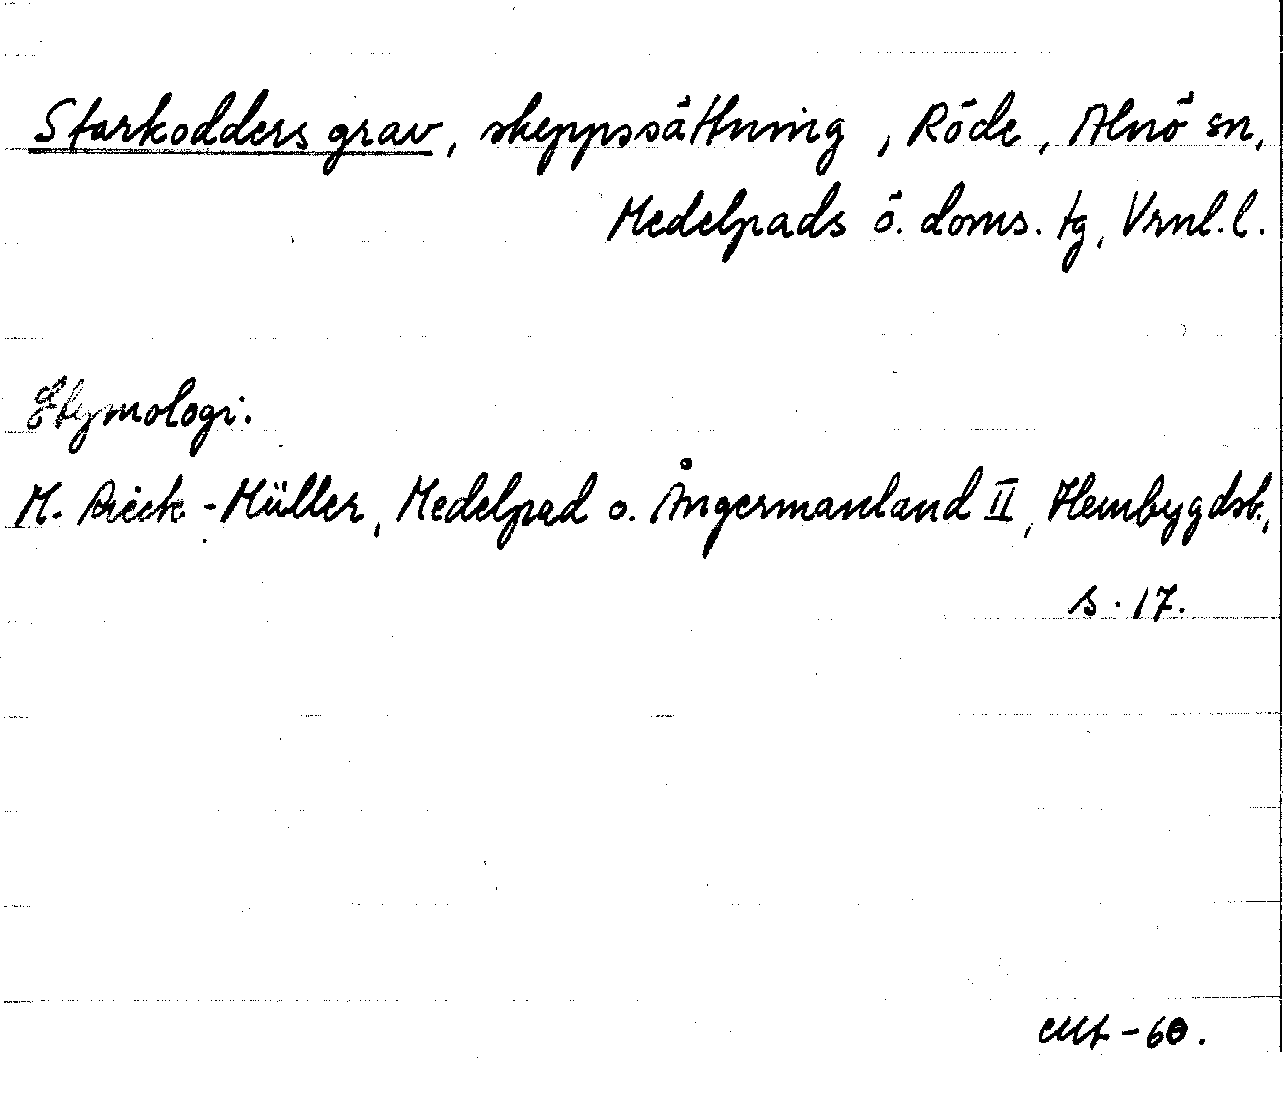 Starkodders grav, skeppssättning, Röde, Alnö sn,
Medelpads ö. doms. tg, Vrnl. l.
Etymologi.
M. Rieck-Müller, Medelpad o. Ångermanland II, Hembygdsb.,
s. 17.
-60.